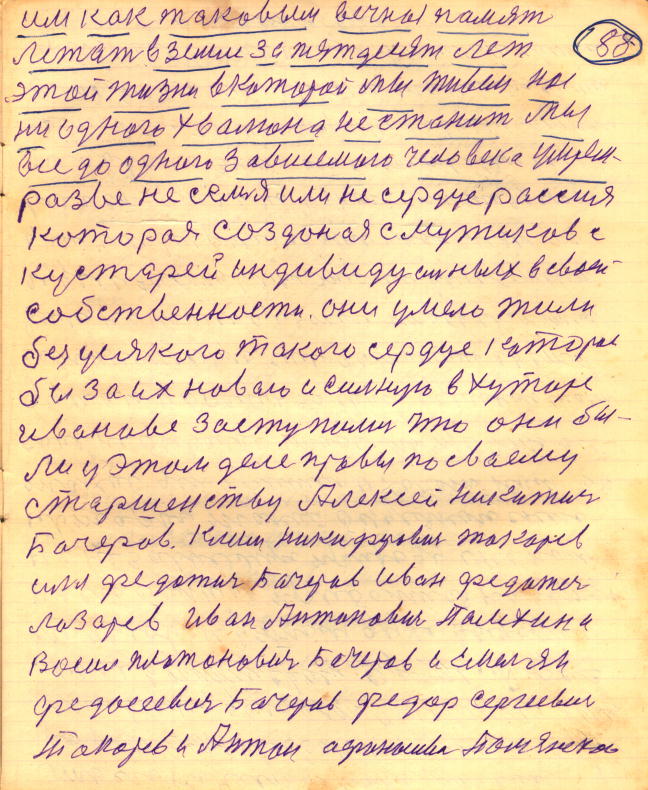 им как таковым вечная память
88
летат в земле за пятдесят лет
этой жизни в которой мы живем на
ни одного хвамона не станит мы
все до одного зависемого человека умрем
разве не семья или не сердце рассия
которая создоная с мутиков с
кустарей индивидуальных в своей
собственности. они умело жили
без усякого такого сердце которое
бы за их новаю и силную в хуторе
иванове заступами что они бы-
ли у этом деле правы по сваему
старшенству Алексей никитич
Бочеров. Клим никифрович токарев
илья федотич Бачеров иван федотич
лазарев иван Антонович
Восил платонович Бачеров и Емельян
федосеевич Бачеров федор сергеевич
Токарев и Антон